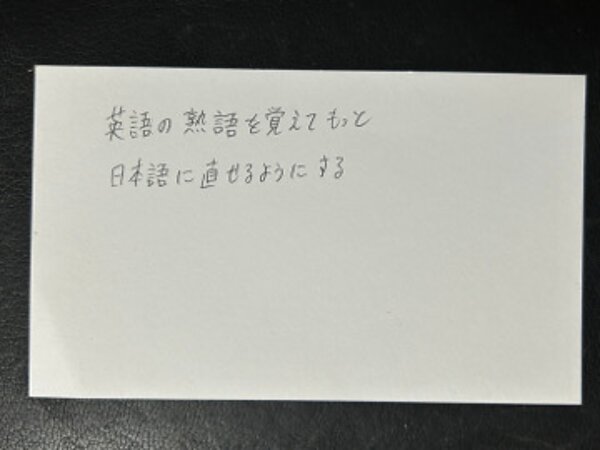 英語の熟語を覚えてもっと
日本語に直せるようにする